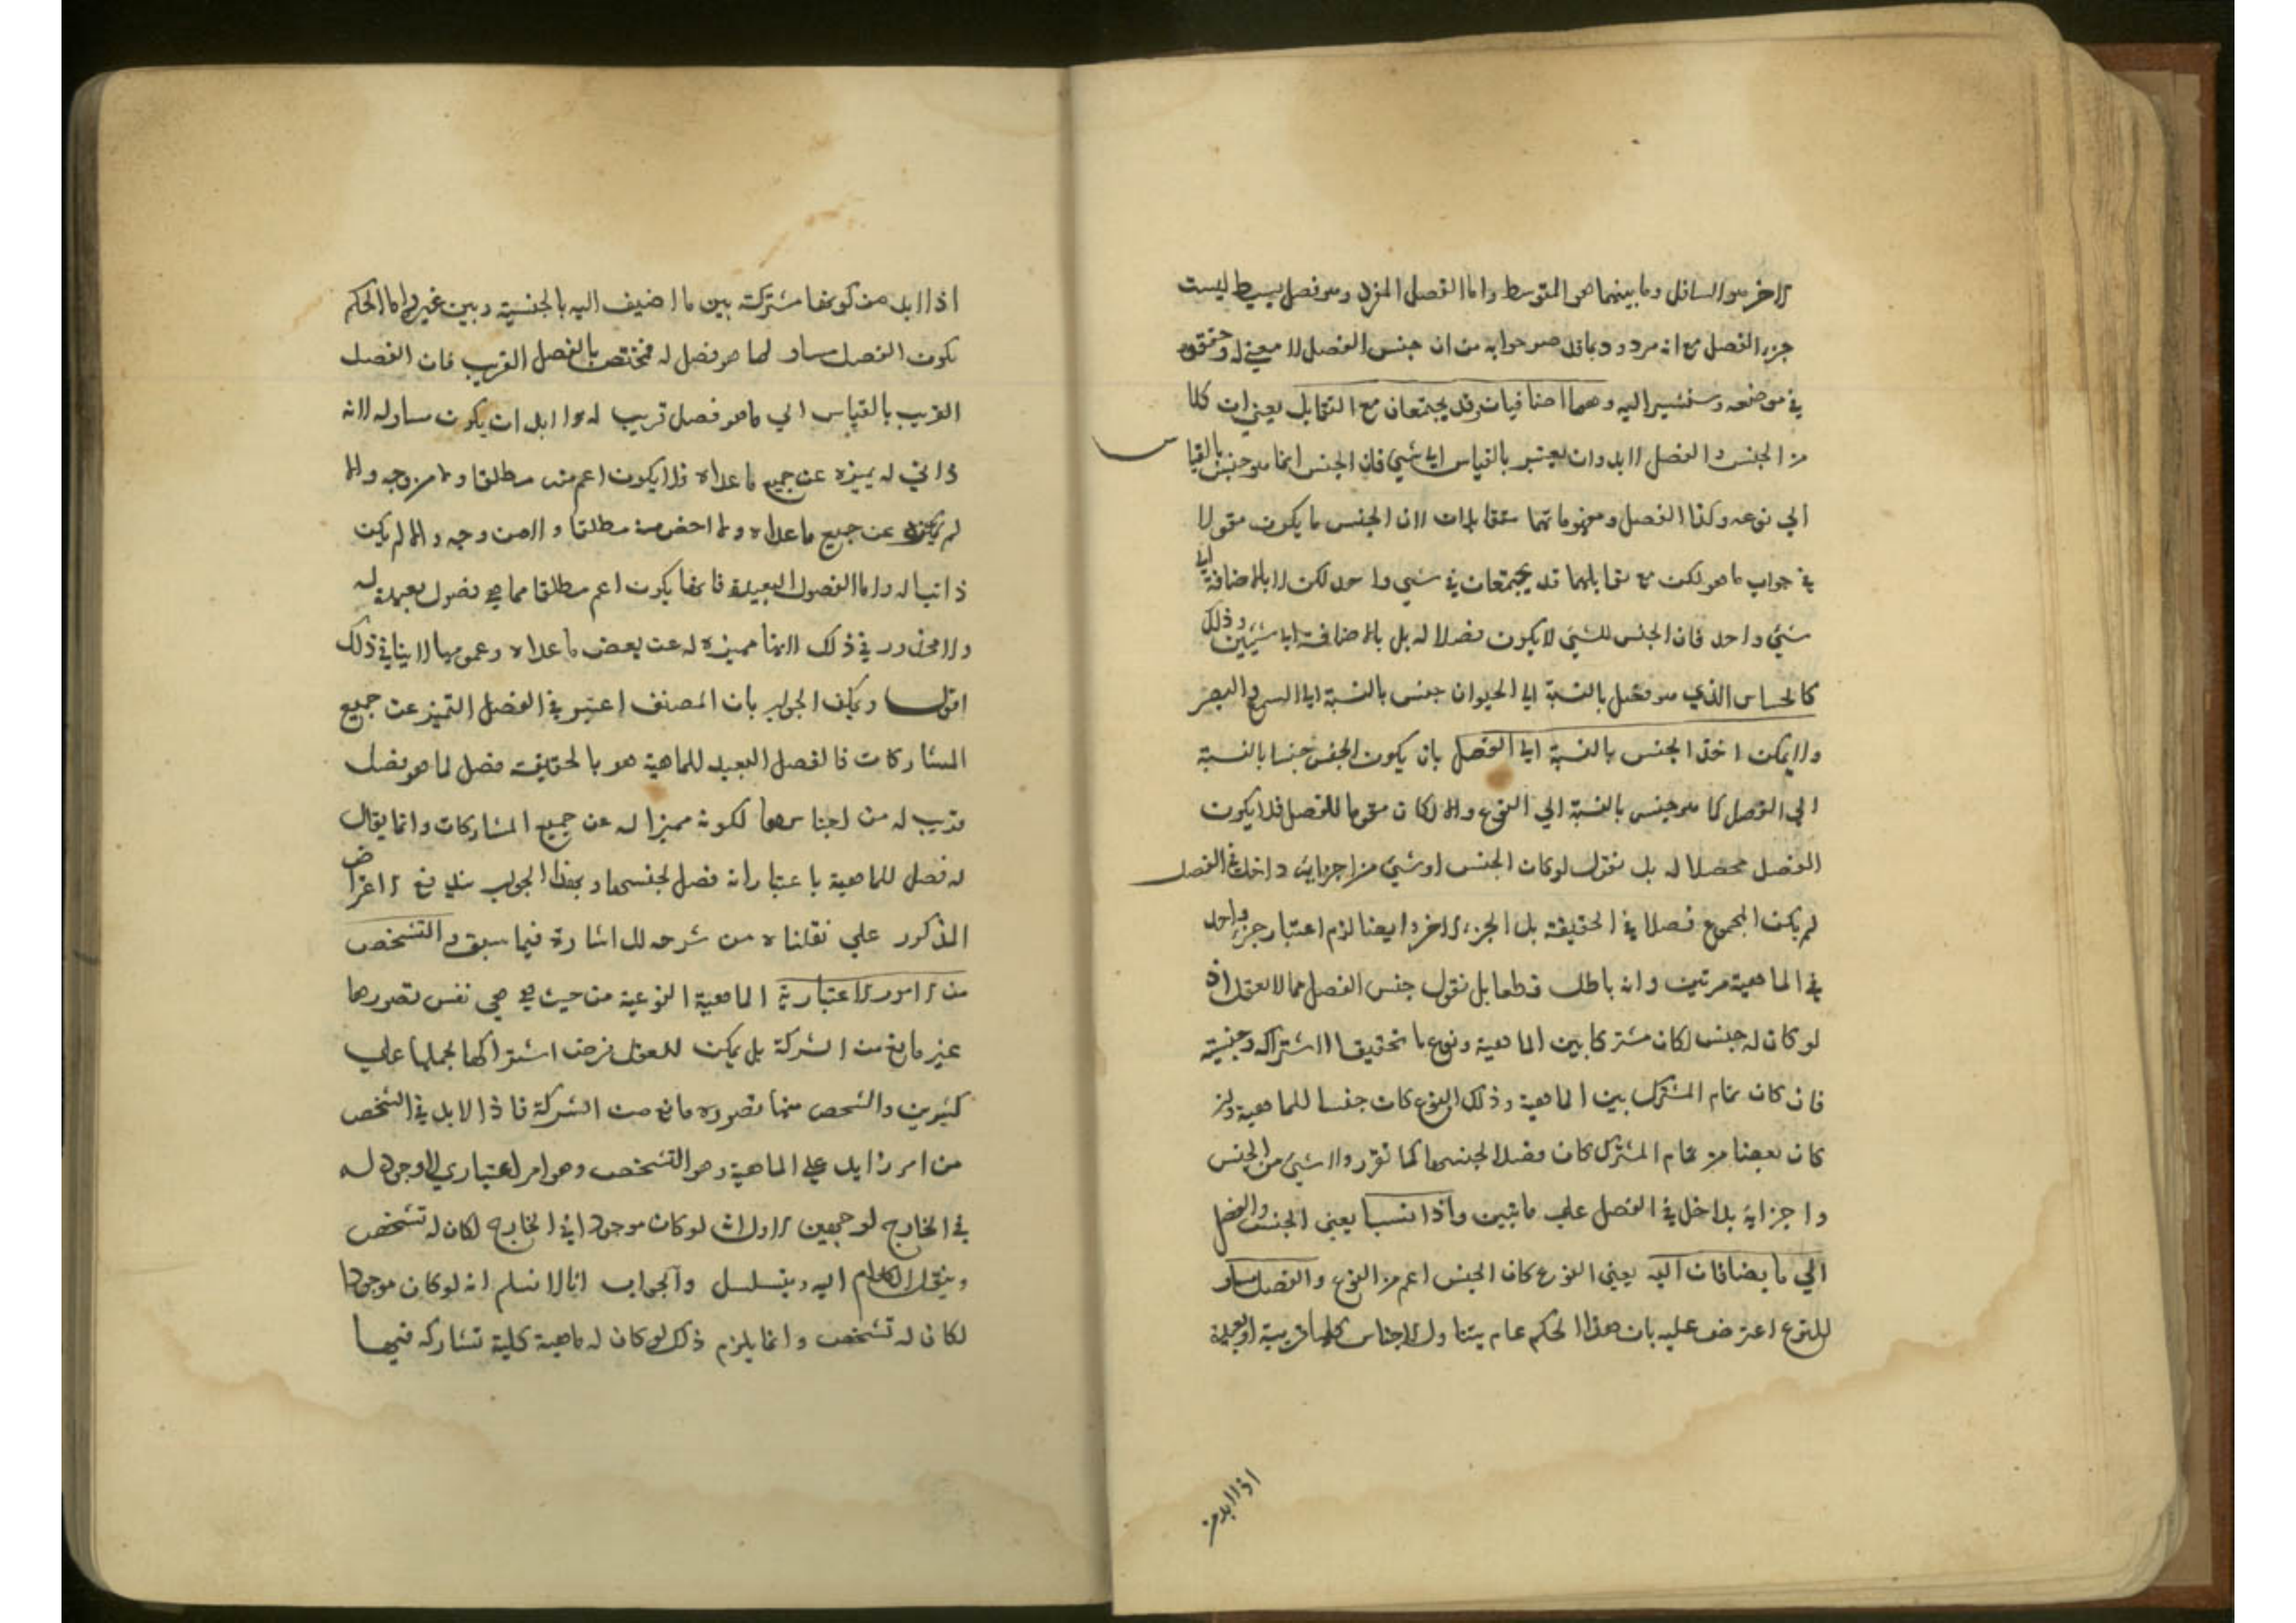 الاخر هو السافل وما بينهما هو المتوسط واما الفصل المفرد وهو فصل بسيط ليست
جزء الفصل مع انه مردود بما قد مر جوابه من ان جنس الفصل لا معنى له وحققوه
في موضعه وسنشير اليه وهما اضافيان وقد يجتمعان مع التقابل يعني ان كلا
من الجنس والفصل لا بد وان يعتبر بالقياس الى شيء فان الجنس انما هو جنس بالقياس
الي نوعه وكذا الفصل ومفهوماتهما متقابلات لان الجنس ما يكون مقولا
في جواب ما هو لكن مع تقابلهما قد يجتمعان في شيء واحد لكن لا بالاضافة الى
شيء واحد فان الجنس للشيء لا يكون فصلا له بل بالاضافة الى شيئين وذلك
كالحساس الذي هو فصل بالنسبة الى الحيوان جنس بالنسبة الى السميع والبصير
ولا يمكن اخذ الجنس بالنسبة الى الفصل بان يكون الجنس جنسا بالنسبة
الى الفصل كما هو جنس بالنسبة الي النوع والا لكان مقوما للفصل فلا يكون
الفصل محصلا له بل نقول لو كان الجنس او شيء من اجزايه داخلا في الفصل
لم يكن المجموع فصلا في الحقيقة بل الجزء الاخر وايضا لزم اعتبار جزء واحد
في الماهية مرتين وانه باطل قطعا بل نقول جنس الفصل مما لا يعقل اذ
لو كان له جنس لكان مشتركا بين الماهية ونوع ما تحقيقا لاشتراكه وجنسيته
فان كان تمام المشترك بين الماهية وذلك النوع كان جنسا للماهية وان
كان بعضا من تمام المشترك كان فصلا لجنسها كما تقرر ولا شيء من الجنس
واجزايه بداخل في الفصل على ما تبين واذا نسبا يعني الجنس والفصل
الي ما يضافان اليه يعني النوع كان الجنس اعم من النوع والفصل مساو
للنوع اعترض عليه بان هذا الحكم عام يتناول الاجناس كلها قريبة او بعيدة
اذ لا بد من
اذ لا بد من كونها مشتركة بين ما اضيف اليه بالجنسية وبين غيره واما الحكم
بكون الفصل مساو لما هو فصل له فمختص بالفصل القريب فان الفصل
القريب بالقياس الي ما هو فصل قريب له لا بد ان يكون مساو له لانه
ذاتي له يميزه عن جميع ما عداه فلا يكون اعم منه مطلقا ولا من وجه والا
لم يميزه عن جميع ما عداه ولا اخص منه مطلقا ولا من وجه والا لم يكن
ذاتيا له واما الفصول البعيدة فانها يكون اعم مطلقا مما هي فصول بعيدة له
ولا محذور في ذلك لانها مميزة له عن بعض ما عداه وعمومها لا ينافي ذلك
اقول ويمكن الجواب بان المصنف اعتبر في الفصل التميز عن جميع
المشاركات فالفصل البعيد للماهية هو بالحقيقة فصل لما هو فصل
قريب له من اجناسها لكونه مميزا له عن جميع المشاركات وانما يقال
له فصل للماهية باعتبار انه فصل لجنسها وبهذا الجواب يندفع الاعتراض
المذكور علي نقلناه من شرحه للاشارة فيما سبق والتشخص
من الامور الاعتبارية الماهية النوعية من حيث هي هي نفس تصورها
غير مانع من الشركة بل يمكن للعقل فرض اشتراكها بحملها على
كثيرين والشخص منها تصوره مانع من الشركة فاذا لا بد في الشخص
من امر زايد على الماهية وهو التشخص وهو امر اعتباري لا وجود له
في الخارج لوجهين الاول انه لو كان موجودا في الخارج لكان له تشخص
وينقل الكلام اليه ويتسلسل والجواب انا لا نسلم انه لو كان موجودا
لكان له تشخص وانما يلزم ذلك لو كان له ماهية كلية تشاركه فيها